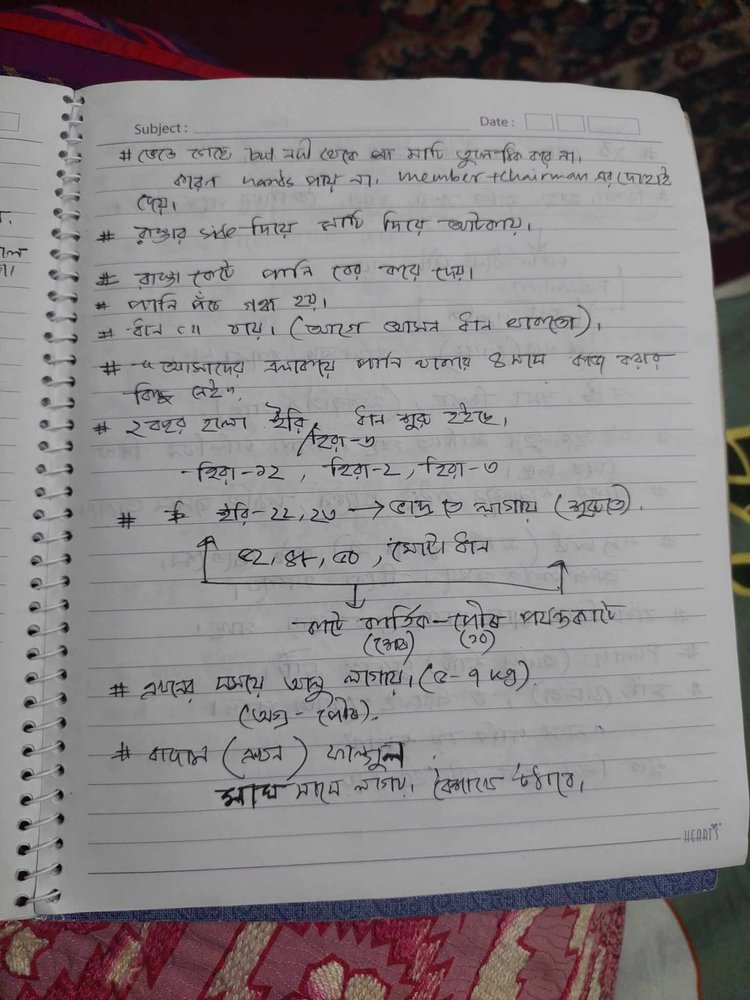 Subject :
Date :
# ভেঙে গেছে but নদী থেকে মাটি তুলে ঠিক করে না।
কারন hands পায় না। member + chairman এর দোহাই
দেয়।
# রাস্তার side দিয়ে মাটি দিয়ে আটকায়।
# রাস্তা কেটে পানি বের করে দেয়।
# পানি পঁচে গন্ধ হয়।
# ধান যায়। (আগে আমন ধান থাকতো)।
# "আমাদের এলাকায় পানি থাকায় ৪ মাস কাজ করার
কিছু নেই"।
# ২ বছর হলো ইরি ধান শুরু হইছে।
/হিরা-৬
হিরা-১২, হিরা-২, হিরা-৬
# ইরি-২২, ২৩ → ভাদ্র তে লাগায় (শুরুতে)।
৫২, ৪৮, ৫০, মোটা ধান
কাটে কার্তিক - পৌষ পর্যন্ত কাটে
(১০)
# এখনের সময়ে আলু লাগায়। (৫-৭ kg).
(অগ্র - পৌষ).
# বাদাম (এখন) ফাল্গুন
মাঘ মাসে লাগায়। বৈশাখে উঠাবে।
HEART'S